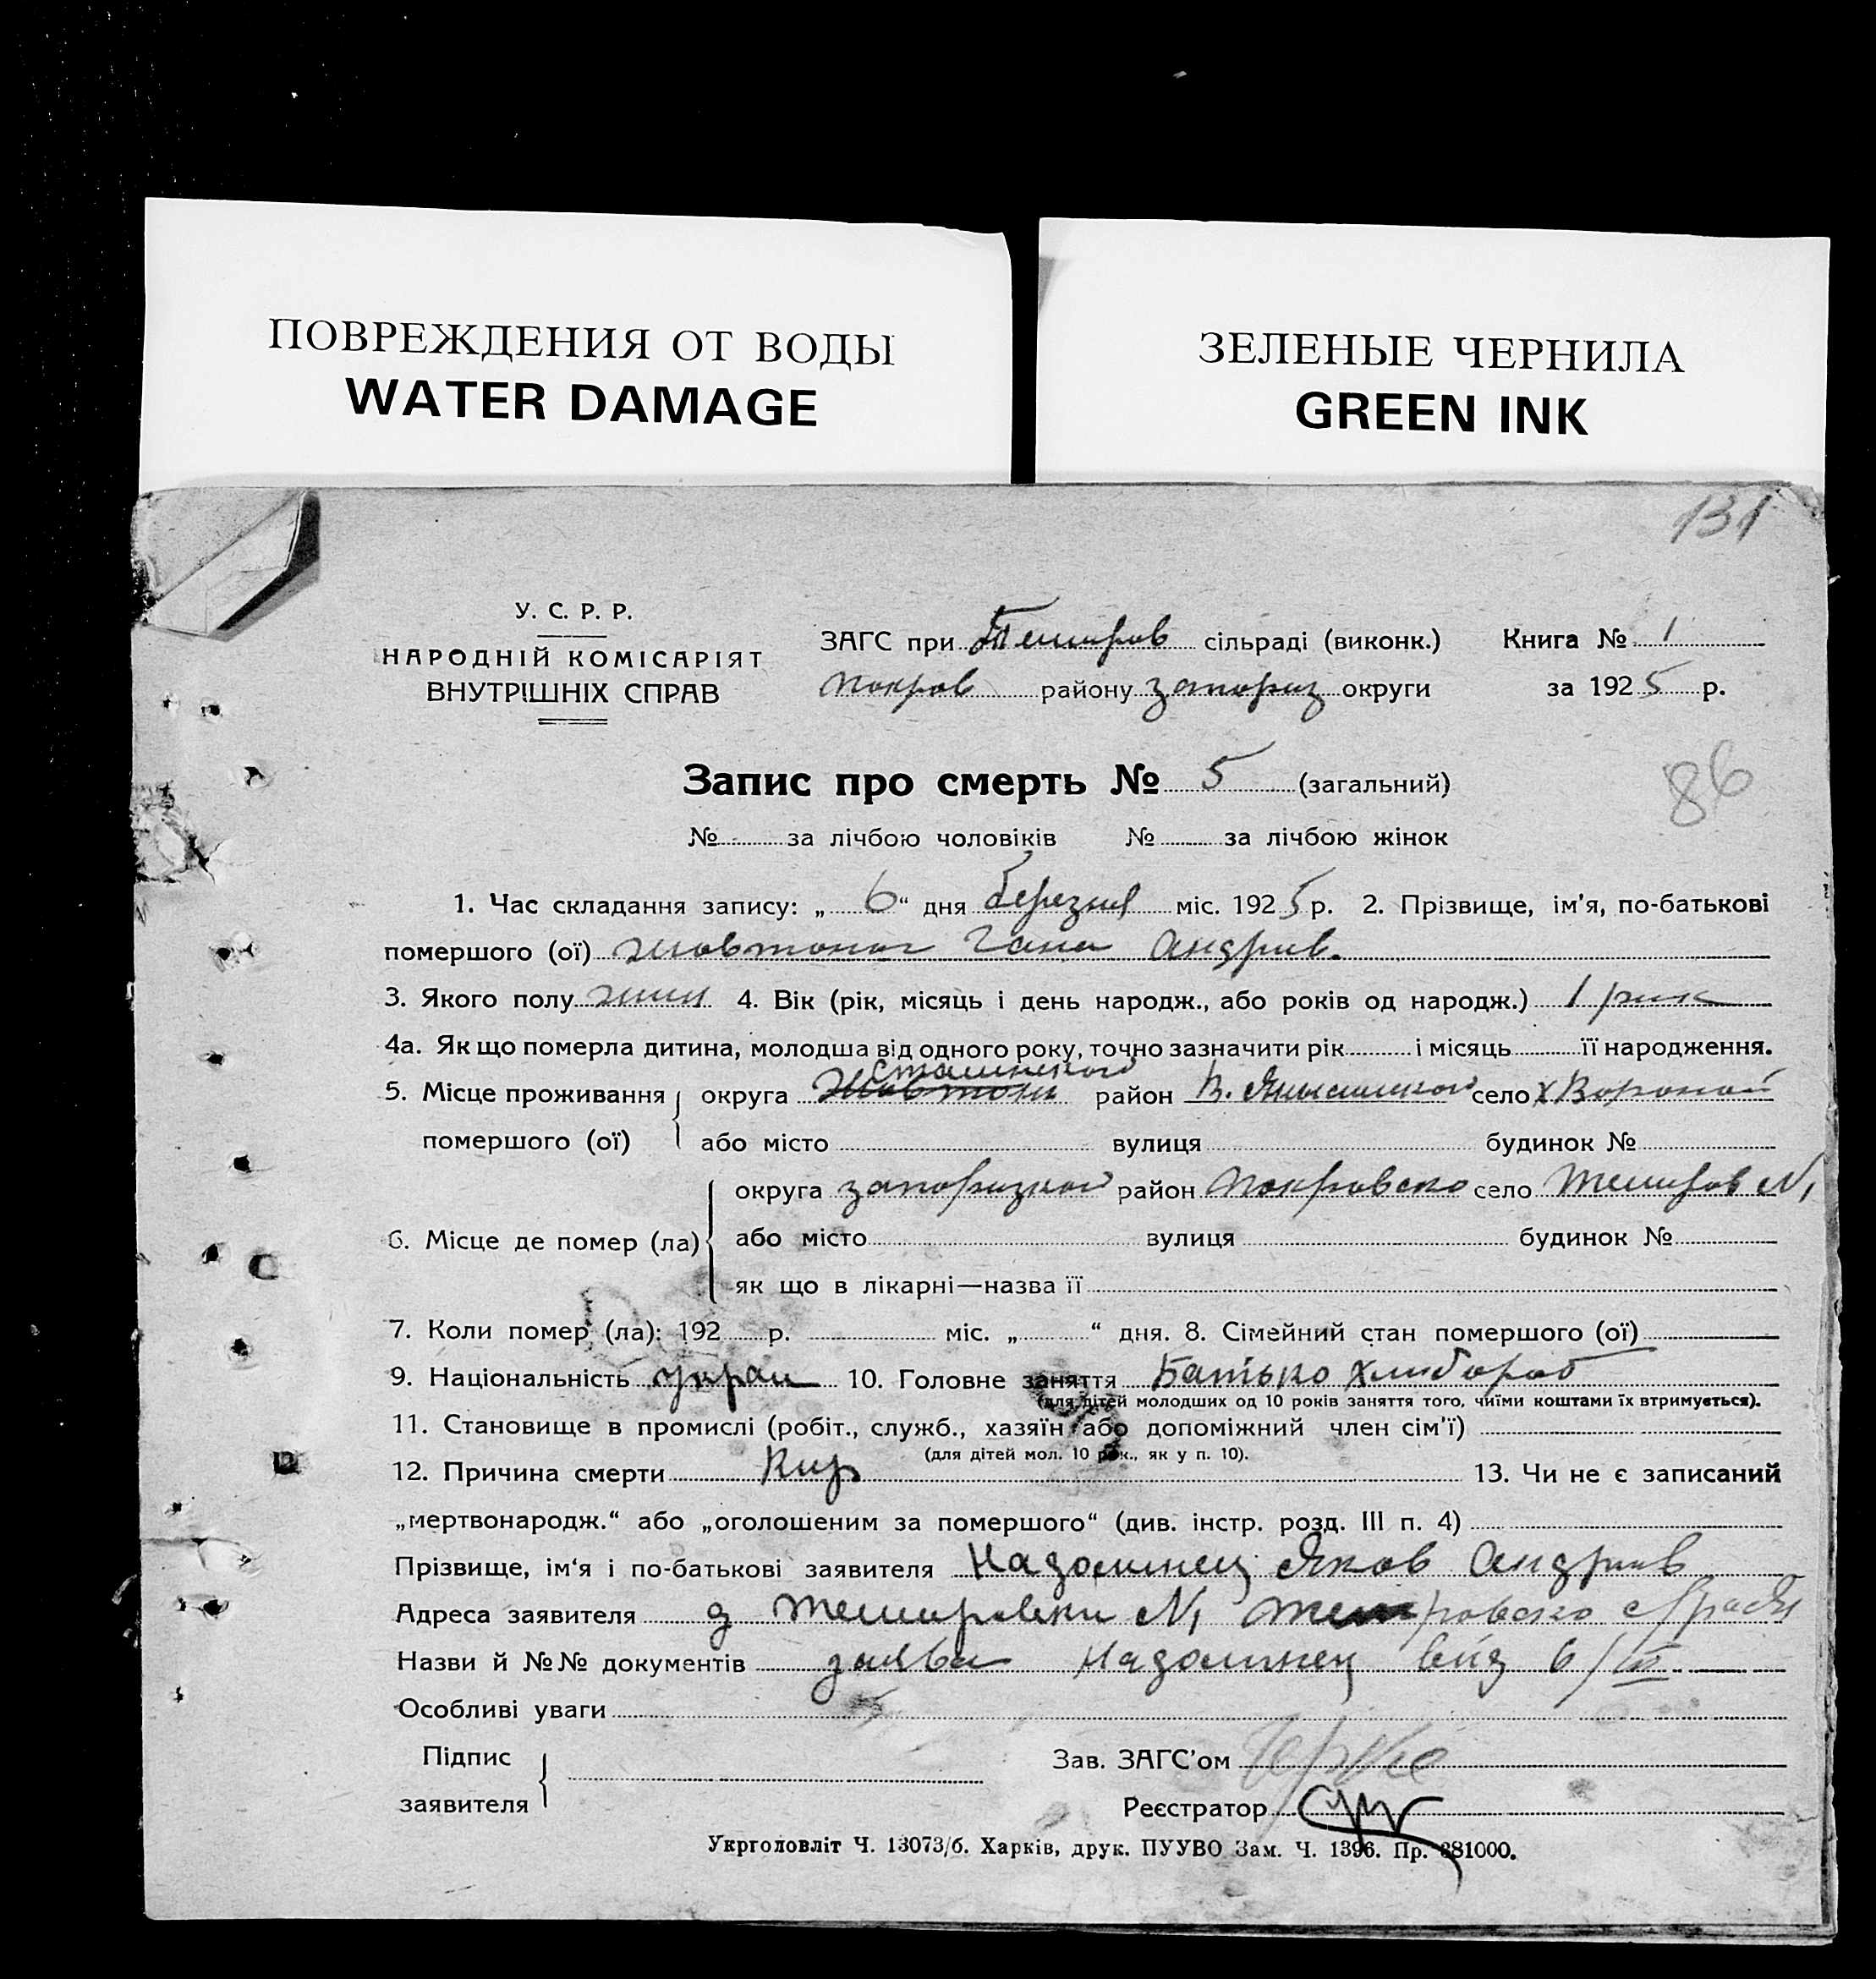 ПОВРЕЖДЕНИЯ ОТ ВОДЫ
WATER DAMAGE
ЗЕЛЕНЫЕ ЧЕРНИЛА
GREEN INK
131
У. С. Р. Р.
НАРОДНІЙ КОМІСАРІЯТ
ВНУТРІШНІХ СПРАВ
ЗАГС при Темиров сільраді (виконк.) Книга № 1
Покров району запориз округи за 1925 р.
Запис про смерть № 5 (загальний)
86
№ за лічбою чоловіків № за лічбою жінок
1. Час складання запису: „6“ дня березня міс. 1925 р. 2. Прізвище, ім'я, по-батькові
помершого (ої) Жовтоног Гана Андрив.
3. Якого полу жин 4. Вік (рік, місяць і день народж., або років од народж.) 1 рик
4а. Як що померла дитина, молодша від одного року, точно зазначити рік і місяць її народження.
Сталинского
5. Місце проживання округа район село х Вороной
помершого (ої) або місто вулиця будинок №
округа запоризкой район Покровско село Темиров №1
6. Місце де помер (ла) або місто вулиця будинок №
як що в лікарні—назва її
7. Коли помер (ла): 192 р. міс. „ “ дня. 8. Сімейний стан помершого (ої)
9. Національність украи 10. Головне заняття Батько хлибороб
(для дітей молодших од 10 років заняття того, чиїми коштами їх втримується).
11. Становище в промислі (робіт., служб., хазяїн або допоміжний член сім'ї)
(для дітей мол. 10 рок., як у п. 10).
12. Причина смерти Кир 13. Чи не є записаний
„мертвонародж.“ або „оголошеним за помершого“ (див. інстр. розд. III п. 4)
Прізвище, ім'я і по-батькові заявителя Надолинец Яков Андрив
Адреса заявителя д Темировки №1
Назви й №№ документів заява Надолинец вид 6/III
Особливі уваги
Підпис
заявителя
Зав. ЗАГС'ом
Реєстратор
Укрголовліт Ч. 13073/б. Харків, друк. ПУУВО Зам. Ч. 1396. Пр. 381000.